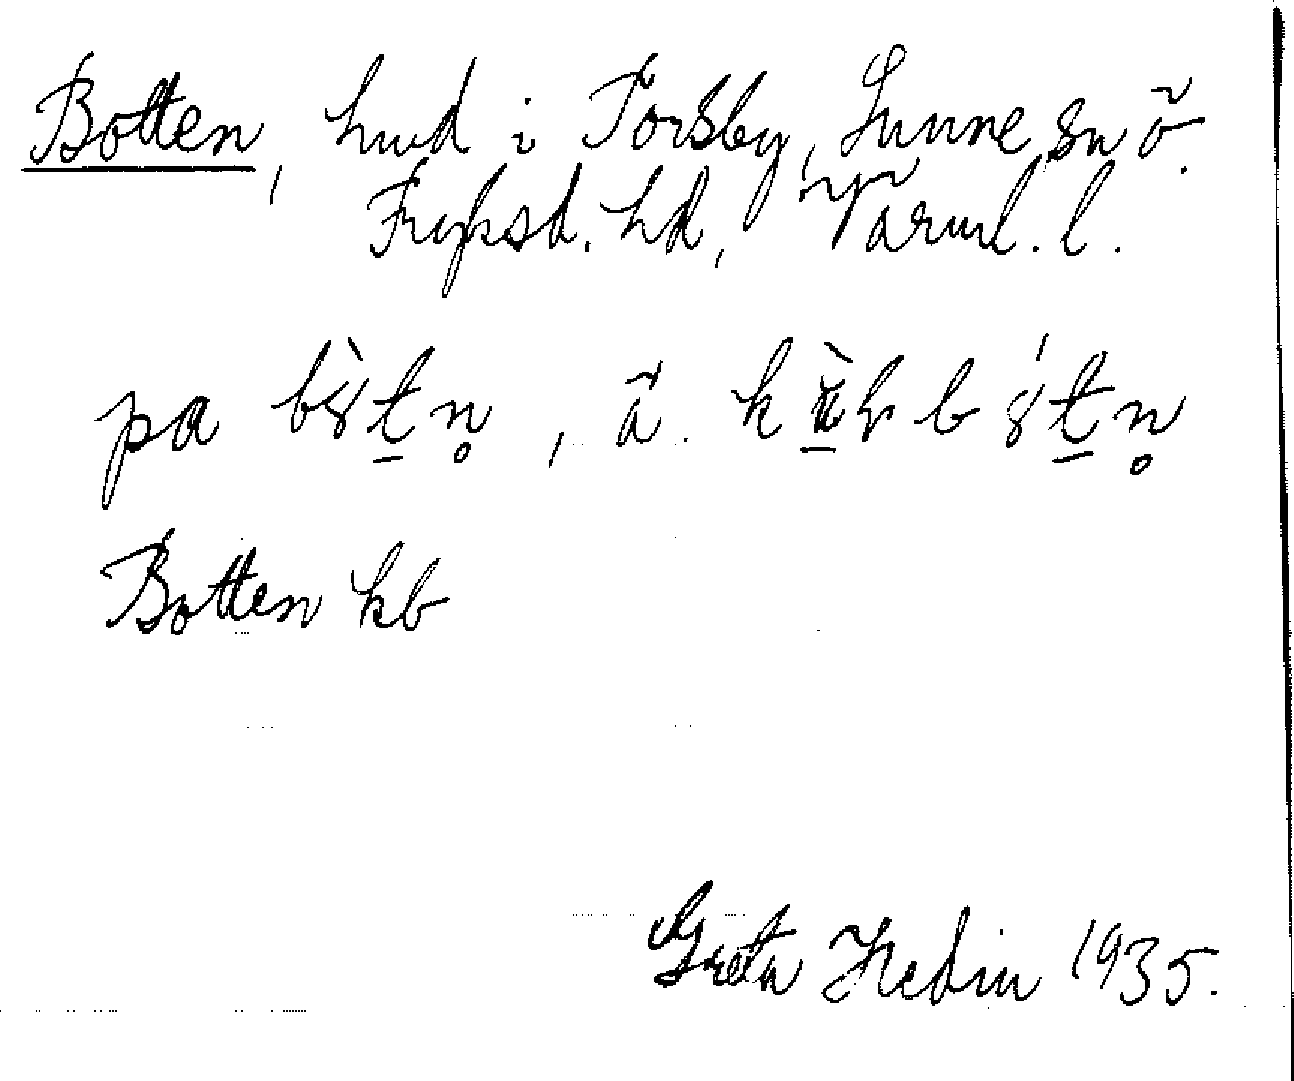 Botten, hmd i Torsby, Sunne sn ö.
Fryksd. hd, Värml. l.
pa
Botten kb
Greta Hedin 1935.